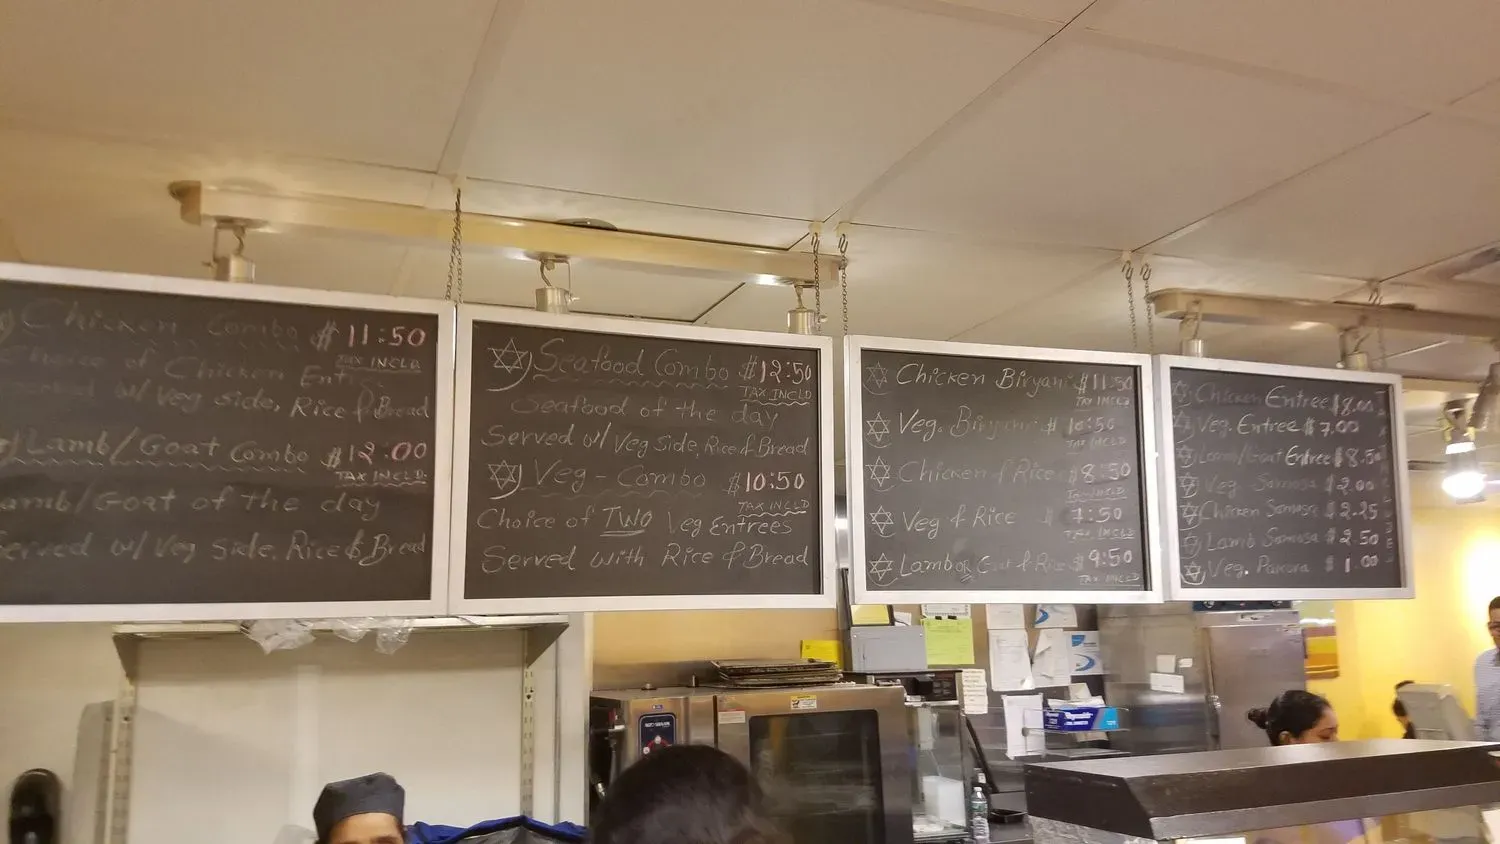 Chicken Combo $11:50
TAX INCLD
Choice of Chicken
w/ Veg side, Rice & Bread
Lamb/Goat Combo $12:00
TAX INCLD
Lamb/Goat of the day
Served w/ Veg side, Rice & Bread
Seafood Combo $12:50
TAX INCLD
Seafood of the day
Served w/ Veg side, Rice & Bread
Veg-Combo $10:50
TAX INCLD
Choice of TWO Veg Entrees
Served with Rice & Bread
Chicken Biryani $11:50
TAX INCLD
Veg. Biryani $10:50
TAX INCLD
Chicken & Rice $8:50
TAX INCLD
Veg & Rice $7:50
TAX INCLD
Lamb or Goat & Rice $9:50
TAX INCLD
Chicken Entree $8.00
Veg. Entree $7.00
Lamb/Goat Entree $8.50
Veg. Samosa $2.00
Chicken Samosa $2.25
Lamb Samosa $2.50
Veg. Pakora $1.00